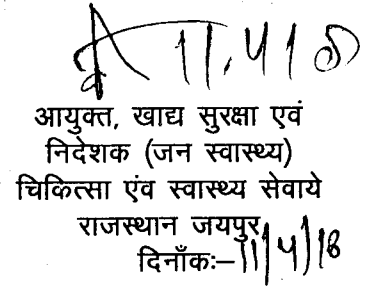 11.4.18
आयुक्त, खाद्य सुरक्षा एवं
निदेशक (जन स्वास्थ्य)
चिकित्सा एंव स्वास्थ्य सेवाये
राजस्थान जयपुर
दिनाँक:–11/4/18